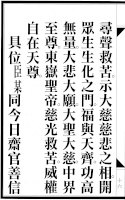 尋聲救苦示大慈慈悲之相開
眾生生化之門福與天齊功高
無量大悲大願大聖大慈中界
至尊東嶽聖帝慈光救苦威權
自在天尊
具位臣某同今日齋官善信